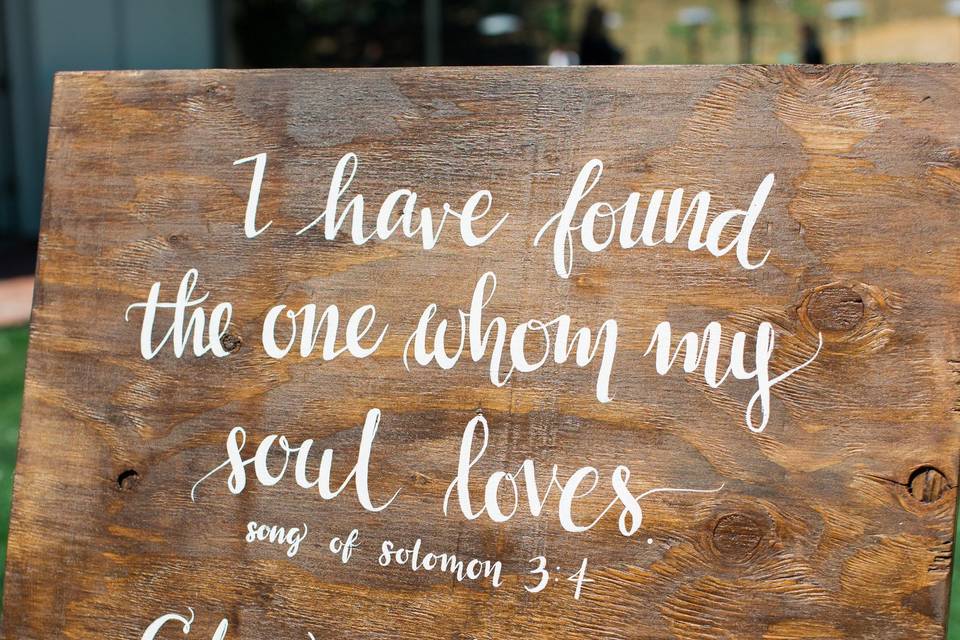 I have found
the one whom my
soul loves.
song of solomon 3:4